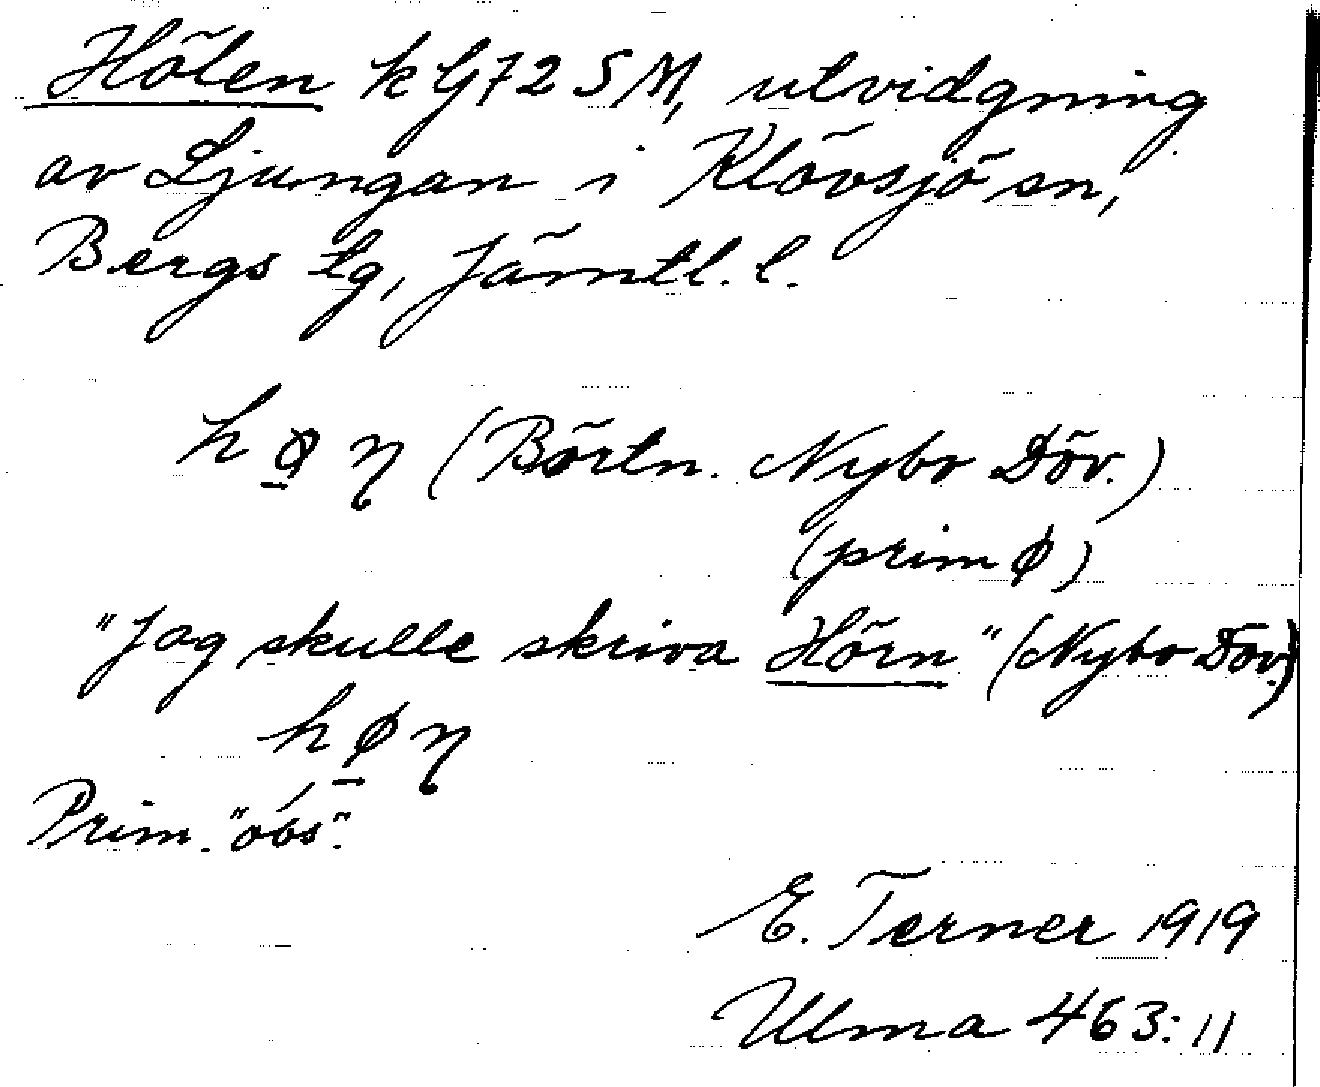 Hölen k G72 SM, utvidgning
av Ljungan i Klövsjö sn,
Bergs tg, Jämtl. l.
h ø η (Börtn. Nybo Döv.)
(prim ø)
"Jag skulle skriva Hörn" (Nybo Döv.)
h ø η
Prim. "óbs".
E. Terner 1919
Ulma 463:11